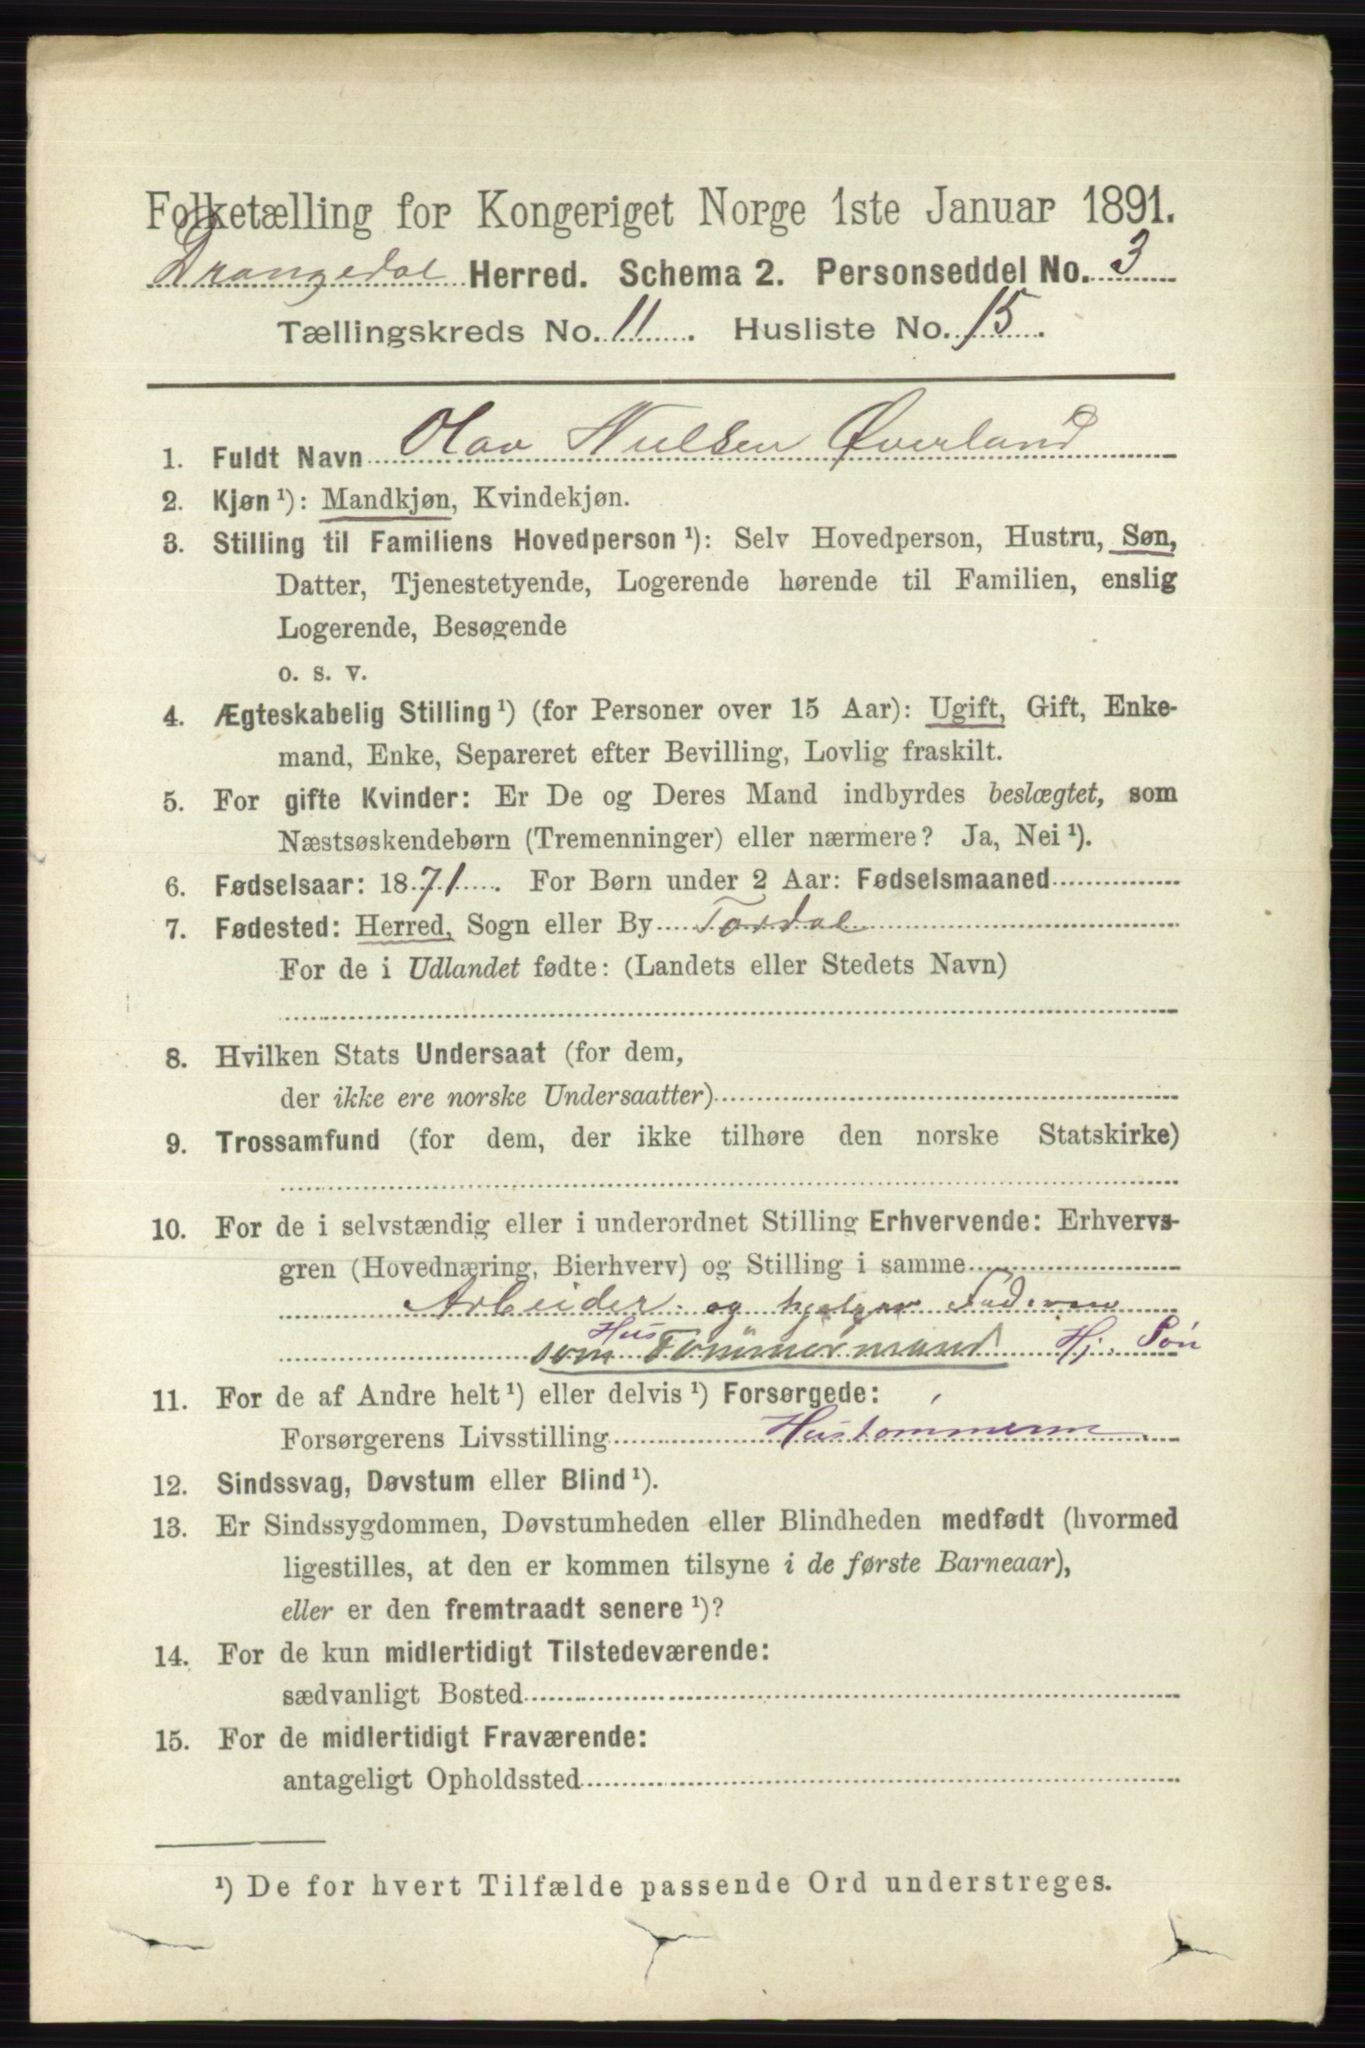 Folketælling for Kongeriget Norge 1ste Januar 1891.
Drangedal Herred. Schema 2. Personseddel No. 3
Tællingskreds No. 11. Husliste No. 15.
1. Fuldt Navn Olav Nielsen Øverland
2. Kjøn ¹): Mandkjøn, Kvindekjøn.
3. Stilling til Familiens Hovedperson ¹): Selv Hovedperson, Hustru, Søn,
Datter, Tjenestetyende, Logerende hørende til Familien, enslig
Logerende, Besøgende
o. s. v.
4. Ægteskabelig Stilling ¹) (for Personer over 15 Aar): Ugift, Gift, Enke-
mand, Enke, Separeret efter Bevilling, Lovlig fraskilt.
5. For gifte Kvinder: Er De og Deres Mand indbyrdes beslægtet, som
Næstsøskendebørn (Tremenninger) eller nærmere? Ja, Nei ¹).
6. Fødselsaar: 1871. For Børn under 2 Aar: Fødselsmaaned
7. Fødested: Herred, Sogn eller By Tørdal
For de i Udlandet fødte: (Landets eller Stedets Navn)
8. Hvilken Stats Undersaat (for dem,
der ikke ere norske Undersaatter)
9. Trossamfund (for dem, der ikke tilhøre den norske Statskirke)
10. For de i selvstændig eller i underordnet Stilling Erhvervende: Erhvervs-
gren (Hovednæring, Bierhverv) og Stilling i samme
Arbeider og hjelper Faderen
som Hus Tømmermand Hj. Søn
11. For de af Andre helt ¹) eller delvis ¹) Forsørgede:
Forsørgerens Livsstilling
12. Sindssvag, Døvstum eller Blind ¹).
13. Er Sindssygdommen, Døvstumheden eller Blindheden medfødt (hvormed
ligestilles, at den er kommen tilsyne i de første Barneaar),
eller er den fremtraadt senere ¹)?
14. For de kun midlertidigt Tilstedeværende:
sædvanligt Bosted
15. For de midlertidigt Fraværende:
antageligt Opholdssted
¹) De for hvert Tilfælde passende Ord understreges.